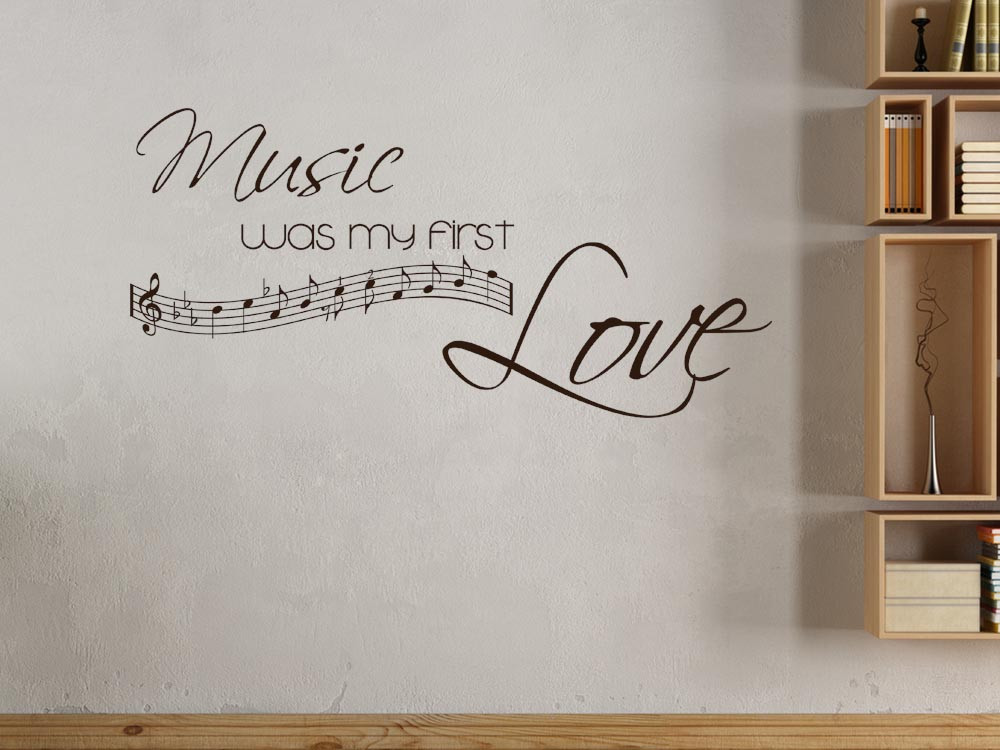 Music
was my first
Love